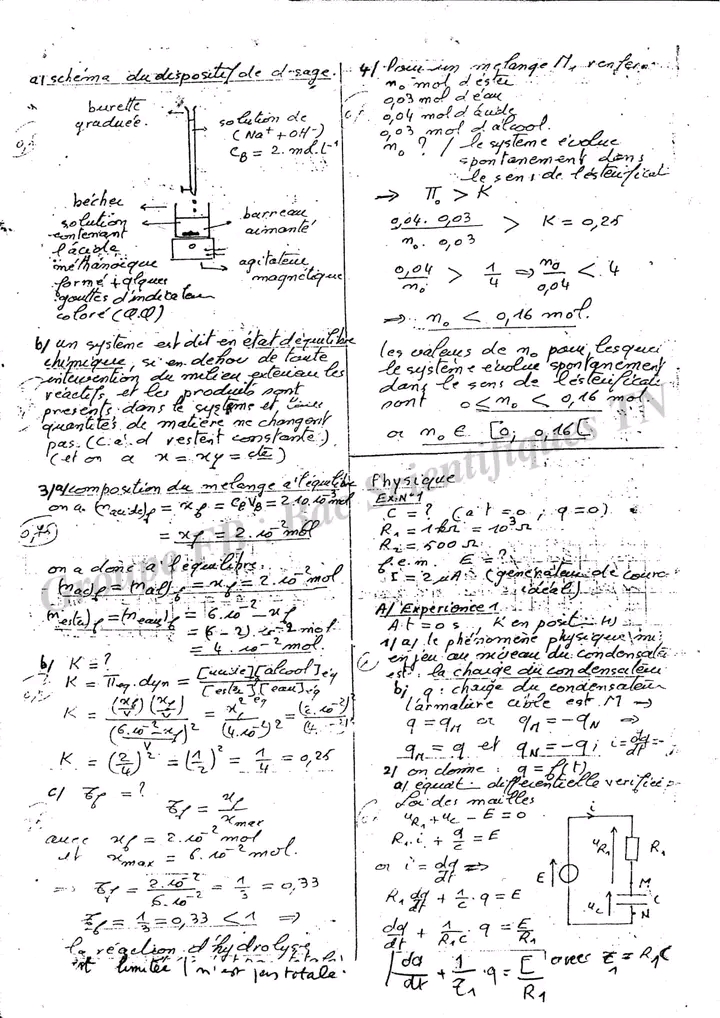 a) schéma du dispositif de d-sage.
burette
graduée.
solution de
(Na⁺ + OH⁻)
C_B = 2. mol.l⁻¹
bécher
solution
contenant
l'acide
méthanoique
formé + qlques
gouttes d'indicateur
coloré (
barreau
aimanté
agitateur
magnétique
b/ un système est dit en état d'équilibre
chimique, si en dehors de toute
intervention du milieu extérieur les
réactifs et les produits sont
présents dans le système et leurs
quantités de matière ne changent
pas. (c.a.d restent constante)
(et on a x = x_f = cte)
3/a/ composition du mélange à l'équilibre
on a (n_acide)_f = x_f = C_B V_B = 2.10.10⁻³ mol
0,75
= x_f = 2.10⁻² mol
on a donc a l'équilibre.
(n_ac)_f = (n_al)_f = x_f = 2.10⁻² mol
(n_ester)_f = (n_eau)_f = 6.10⁻² - x_f
= (6-2).10⁻² mol
= 4.10⁻² mol
b/ K = ?
K = π_eq.dyn = [acide][alcool]éq / [ester][eau]éq
K = (x_f/V)(x_f/V) / ((6.10⁻² - x_f)/V)² = x_f² / (4.10⁻²)² = (2.10⁻²)² / (4.
K = (2/4)² = (1/2)² = 1/4 = 0,25
c/ τ_f = ?
τ_f = x_f / x_max
avec x_f = 2.10⁻² mol
et x_max = 6.10⁻² mol.
⇒ τ_f = 2.10⁻² / 6.10⁻² = 1/3 = 0,33
τ_f = 1/3 = 0,33 < 1 ⇒
la réaction d'hydrolyse
est limitée (n'est pas totale.
4/ Pour un mélange M₁ renfer
n₀ mol d'ester
0,03 mol d'eau
0,04 mol d'acide
0,03 mol d'alcool.
n₀ ? / le système évolue
spontanément dans
le sens de l'estérificat
⇒ π₀ > K
0,04. 0,03 / n₀. 0,03 > K = 0,25
0,04 / n₀ > 1/4 ⇒ n₀ / 0,04 < 4
⇒ n₀ < 0,16 mol.
les valeurs de n₀ pour lesquel
le système évolue spontanément
dans le sens de l'estérificati
sont 0 ≤ n₀ < 0,16 mol
or n₀ ∈ [0, 0,16[
Physique
Ex: N°1
C = ? (a t = 0 ; q = 0)
R₁ = 1kΩ = 10³Ω
R₂ = 500 Ω
f.e.m. E = ?
I = 2 μA (générateur de coura
idéal)
A/ Expérience 1
A t = 0 s, K en posit
1/ a/ le phénomène physique mi
en jeu au niveau du condensate
est la charge du condensateur
b/ q : charge du condensateur
l'armature cible est M →
q = q_M or q_M = -q_N ⇒
q_M = q et q_N = -q ; i = dq/dt
2/ on donne : q = f(t)
a/ équat. différentielle vérifiée
Loi des mailles
u_R1 + u_c - E = 0
R₁.i + q/c = E
or i = dq/dt ⇒
R₁ dq/dt + 1/c . q = E
dq/dt + 1/R₁C . q = E/R₁
dq/dt + 1/τ₁ . q = E/R₁ avec τ₁ = R₁C
i
u_R1
R₁
E
M
C
u_c
N
Groupe FB : Bac Scientifiques TN